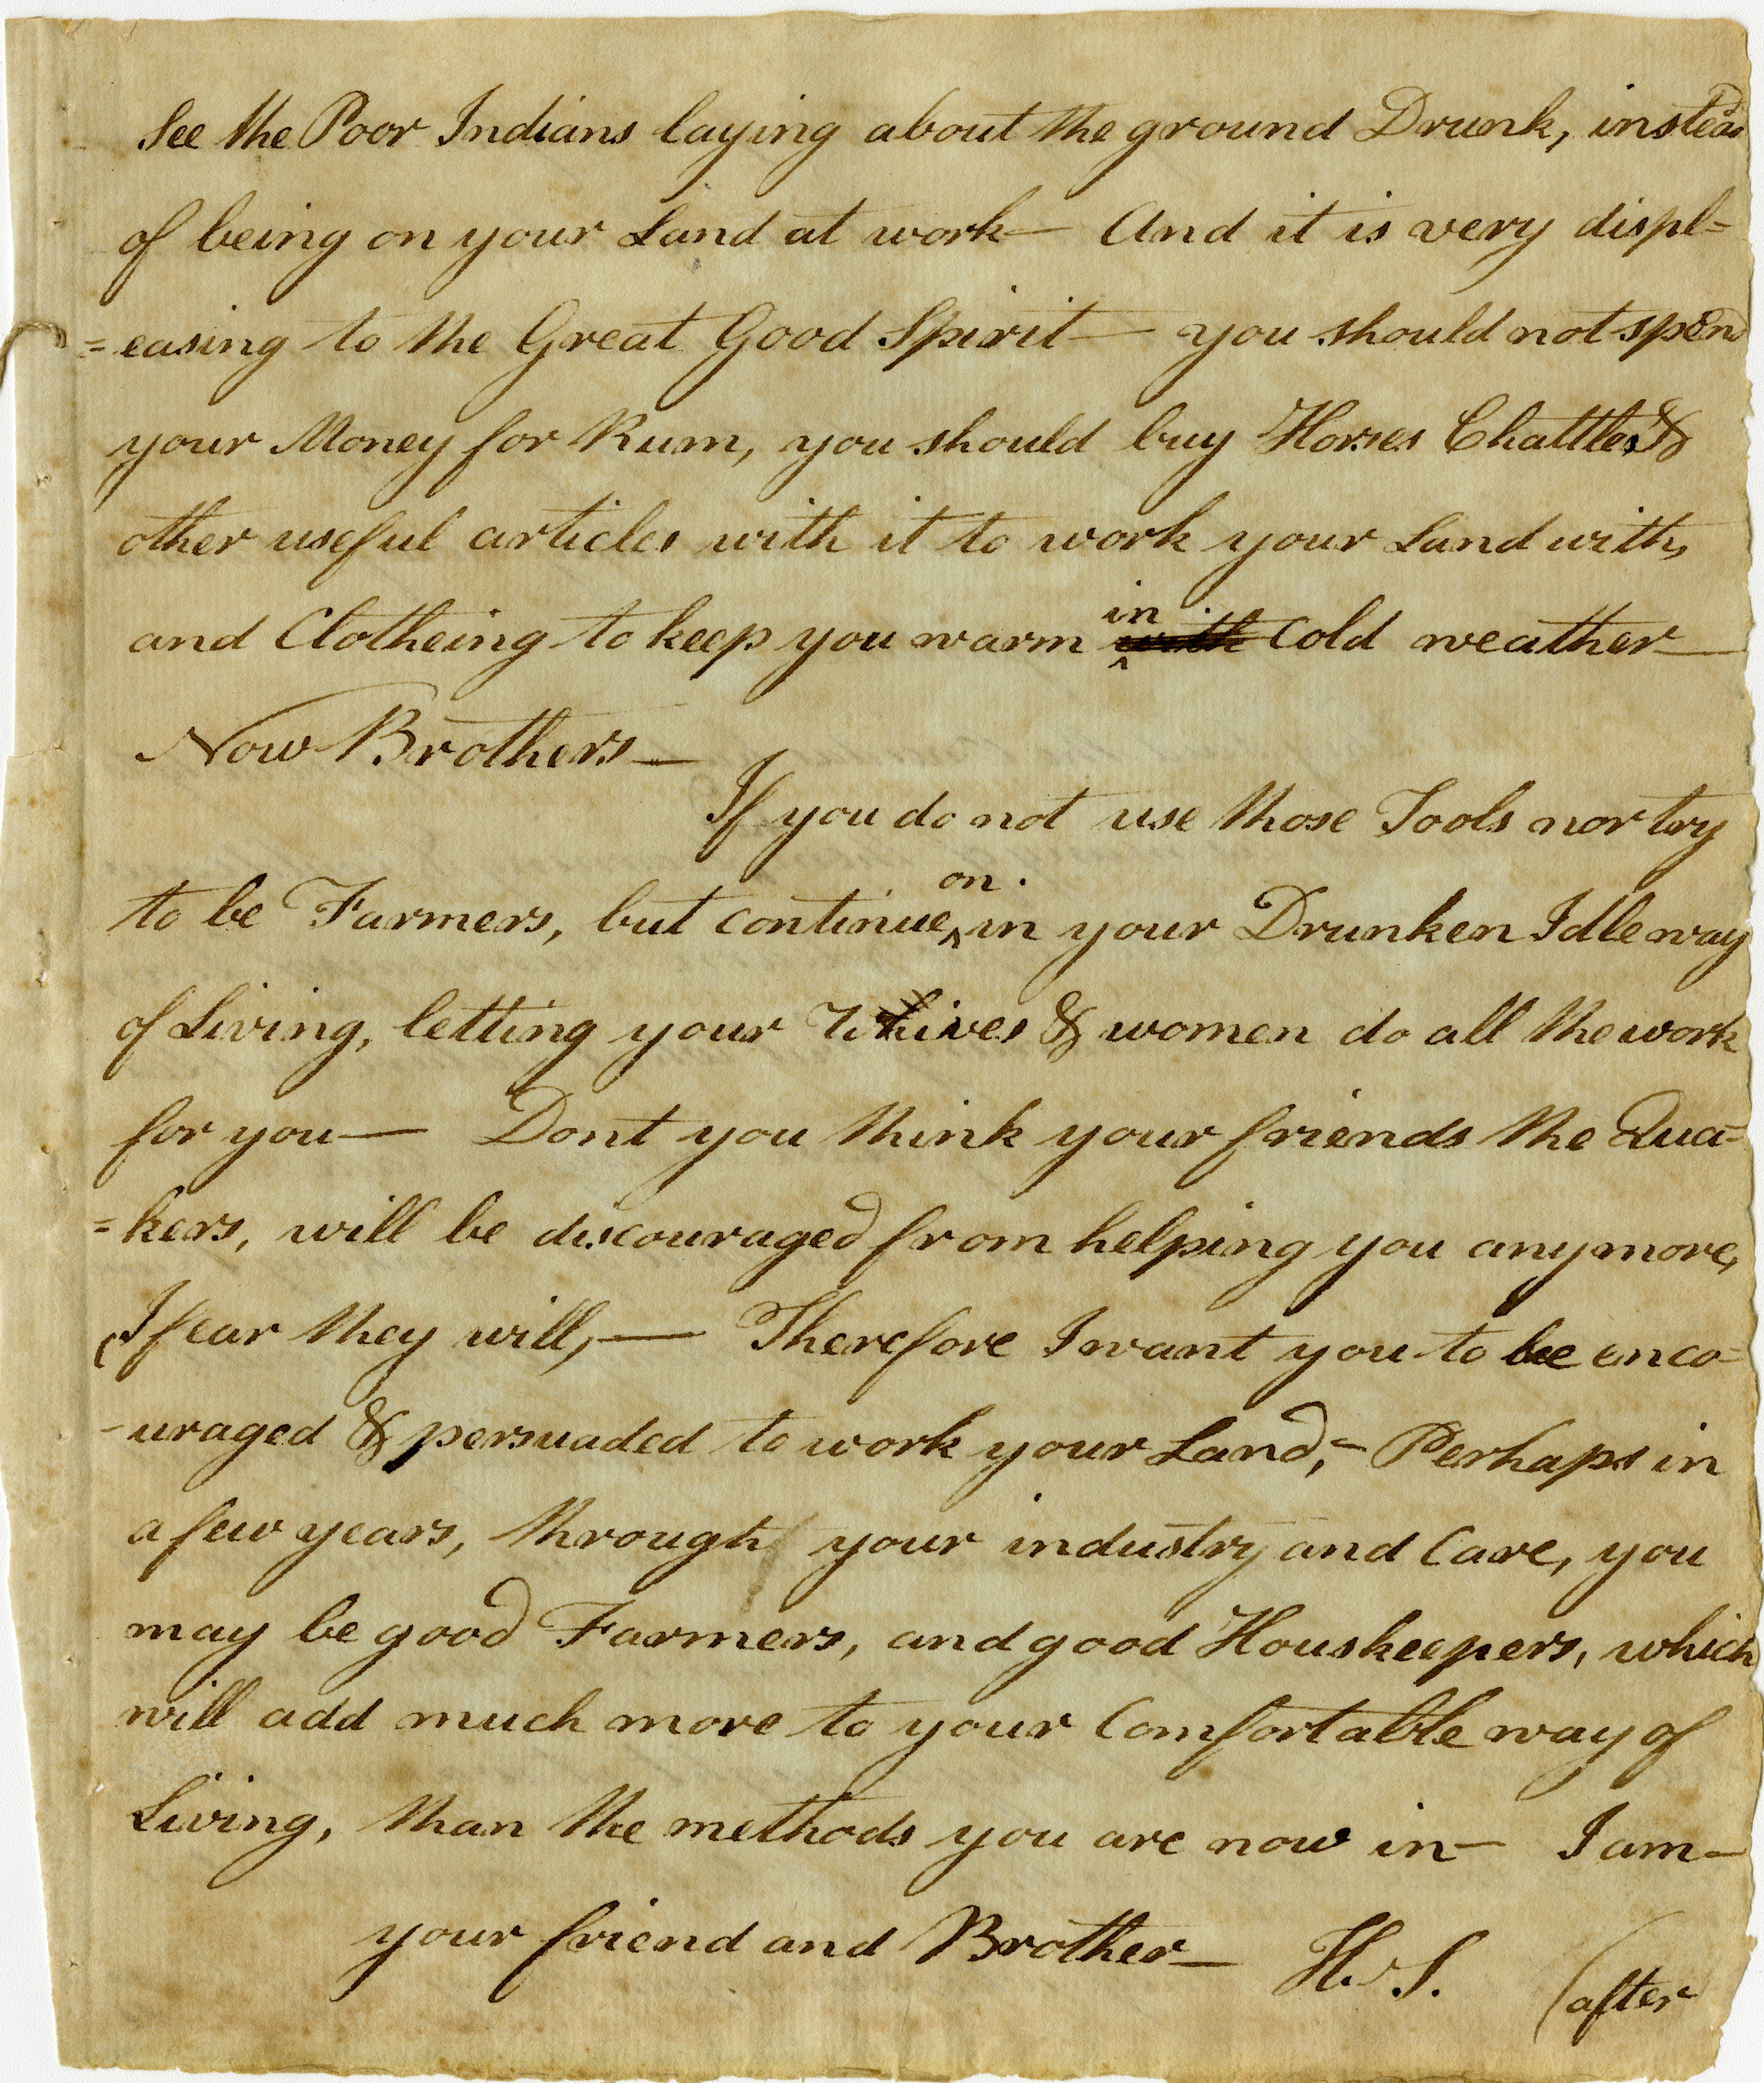 See the Poor Indians laying about the ground Drunk, instead
of being on your Land at work— And it is very displ=
=easing to the Great Good Spirit— you should not spend
your Money for Rum, you should buy Horses Chattles &
other useful articles with it to work your Land with,
and Clotheing to keep you warm in with Cold weather—
Now Brothers—
If you do not use those Tools nor try
to be Farmers, but continue on in your Drunken Idle way
of Living, letting your Whives & women do all the work
for you— Dont you think your friends the Qua=
=kers, will be discouraged from helping you anymore,
(I fear they will,— Therefore I want you to be enco=
-uraged & persuaded to work your Land,- Perhaps in
a few years, through your industry and Care, you
may be good Farmers, and good Houskeepers, which
will add much more to your Comfortable way of
Living, than the methods you are now in— I am—
your friend and Brother— H. S. (after